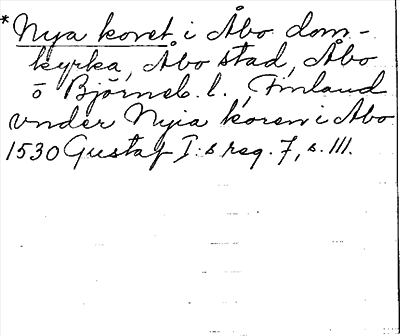 *Nya koret i Åbo dom-
kyrka, Åbo stad, Åbo
o Björneb. l., Finland
vnder Nyia koren i Åbo
1530 Gustaf I:s reg. 7, s. 111.